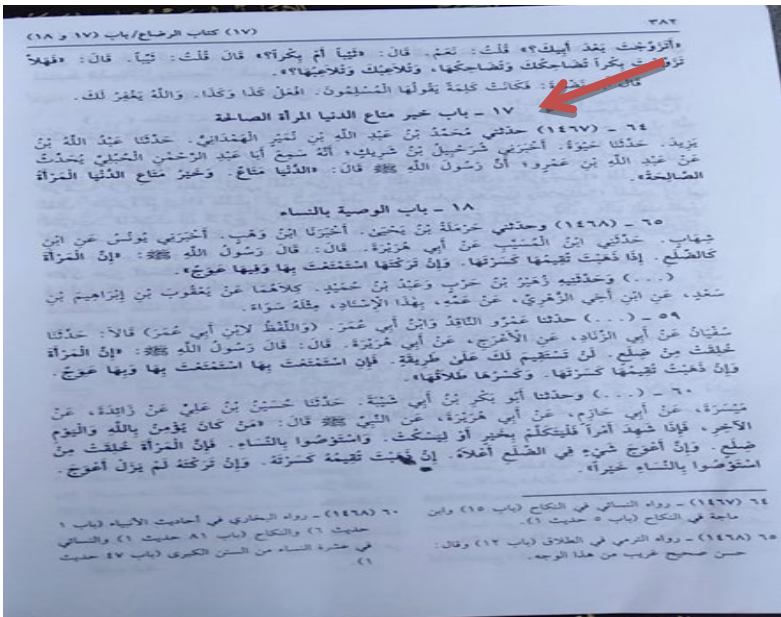 ٣٨٢ (١٧) كتاب الرضاع/باب (١٧ و ١٨)
«أَتَزَوَّجْتَ بَعْدَ أَبِيكَ؟» قُلْتُ: نَعَمْ. قَالَ: «ثَيِّباً أَمْ بِكْراً؟» قَالَ قُلْتُ: ثَيِّباً. قَالَ: «فَهَلاَّ
تَزَوَّجْتَ بِكْراً تُضَاحِكُكَ وَتُضَاحِكُهَا، وَتُلاَعِبُكَ وَتُلاَعِبُهَا؟».
قَالَ نَضْرَةَ: فَكَانَتْ كَلِمَةً يَقُولُهَا الْمُسْلِمُونَ. افْعَلْ كَذَا وَكَذَا. وَاللَّهُ يَغْفِرُ لَكَ.
١٧ – باب خير متاع الدنيا المرأة الصالحة
٦٤ – (١٤٦٧) حدثني مُحَمَّدُ بْنُ عَبْدِ اللَّهِ بْنِ نُمَيْرٍ الْهَمْدَانِيُّ. حَدَّثَنَا عَبْدُ اللَّهِ بْنُ
يَزِيدَ. حَدَّثَنَا حَيْوَةُ. أَخْبَرَنِي شُرَحْبِيلُ بْنُ شَرِيكٍ، أَنَّهُ سَمِعَ أَبَا عَبْدِ الرَّحْمَنِ الْحُبُلِيَّ يُحَدِّثُ
عَنْ عَبْدِ اللَّهِ بْنِ عَمْرٍو، أَنَّ رَسُولَ اللَّهِ ﷺ قَالَ: «الدُّنْيَا مَتَاعٌ. وَخَيْرُ مَتَاعِ الدُّنْيَا الْمَرْأَةُ
الصَّالِحَةُ».
١٨ – باب الوصية بالنساء
٦٥ – (١٤٦٨) وحدثني حَرْمَلَةُ بْنُ يَحْيَىٰ. أَخْبَرَنَا ابْنُ وَهْبٍ. أَخْبَرَنِي يُونُسُ عَنِ ابْنِ
شِهَابٍ. حَدَّثَنِي ابْنُ الْمُسَيَّبِ عَنْ أَبِي هُرَيْرَةَ. قَالَ: قَالَ رَسُولُ اللَّهِ ﷺ: «إِنَّ الْمَرْأَةَ
كَالضِّلَعِ. إِذَا ذَهَبْتَ تُقِيمُهَا كَسَرْتَهَا. وَإِنْ تَرَكْتَهَا اسْتَمْتَعْتَ بِهَا وَفِيهَا عِوَجٌ».
(...) وَحَدَّثَنِيهِ زُهَيْرُ بْنُ حَرْبٍ وَعَبْدُ بْنُ حُمَيْدٍ. كِلاَهُمَا عَنْ يَعْقُوبَ بْنِ إِبْرَاهِيمَ بْنِ
سَعْدٍ، عَنِ ابْنِ أَخِي الزُّهْرِيِّ، عَنْ عَمِّهِ، بِهَذَا الإِسْنَادِ، مِثْلَهُ سَوَاءً.
٥٩ – (...) حدثنا عَمْرٌو النَّاقِدُ وَابْنُ أَبِي عُمَرَ. (وَاللَّفْظُ لابْنِ أَبِي عُمَرَ) قَالاَ: حَدَّثَنَا
سُفْيَانُ عَنْ أَبِي الزِّنَادِ، عَنِ الأَعْرَجِ، عَنْ أَبِي هُرَيْرَةَ. قَالَ: قَالَ رَسُولُ اللَّهِ ﷺ: «إِنَّ الْمَرْأَةَ
خُلِقَتْ مِنْ ضِلَعٍ. لَنْ تَسْتَقِيمَ لَكَ عَلَىٰ طَرِيقَةٍ. فَإِنِ اسْتَمْتَعْتَ بِهَا اسْتَمْتَعْتَ بِهَا وَبِهَا عِوَجٌ.
وَإِنْ ذَهَبْتَ تُقِيمُهَا كَسَرْتَهَا. وَكَسْرُهَا طَلاَقُهَا».
٦٠ – (...) وحدثنا أَبُو بَكْرِ بْنُ أَبِي شَيْبَةَ. حَدَّثَنَا حُسَيْنُ بْنُ عَلِيٍّ عَنْ زَائِدَةَ، عَنْ
مَيْسَرَةَ، عَنْ أَبِي حَازِمٍ، عَنْ أَبِي هُرَيْرَةَ، عَنِ النَّبِيِّ ﷺ قَالَ: «مَنْ كَانَ يُؤْمِنُ بِاللَّهِ وَالْيَوْمِ
الآخِرِ، فَإِذَا شَهِدَ أَمْراً فَلْيَتَكَلَّمْ بِخَيْرٍ أَوْ لِيَسْكُتْ. وَاسْتَوْصُوا بِالنِّسَاءِ. فَإِنَّ الْمَرْأَةَ خُلِقَتْ مِنْ
ضِلَعٍ. وَإِنَّ أَعْوَجَ شَيْءٍ فِي الضِّلَعِ أَعْلاَهُ. إِنْ ذَهَبْتَ تُقِيمُهُ كَسَرْتَهُ. وَإِنْ تَرَكْتَهُ لَمْ يَزَلْ أَعْوَجَ.
اسْتَوْصُوا بِالنِّسَاءِ خَيْراً».
٦٤ (١٤٦٧) – رواه النسائي في النكاح (باب ١٥) وابن
ماجة في النكاح (باب ٥ حديث ١).
٦٥ (١٤٦٨) – رواه الترمي في الطلاق (باب ١٢) وقال:
حسن صحيح غريب من هذا الوجه.
٦٠ (١٤٦٨) – رواه البخاري في أحاديث الأنبياء (باب ١
حديث ٦) والنكاح (باب ٨١ حديث ١) والنسائي
في عشرة النساء من السنن الكبرى (باب ٤٧ حديث
١).